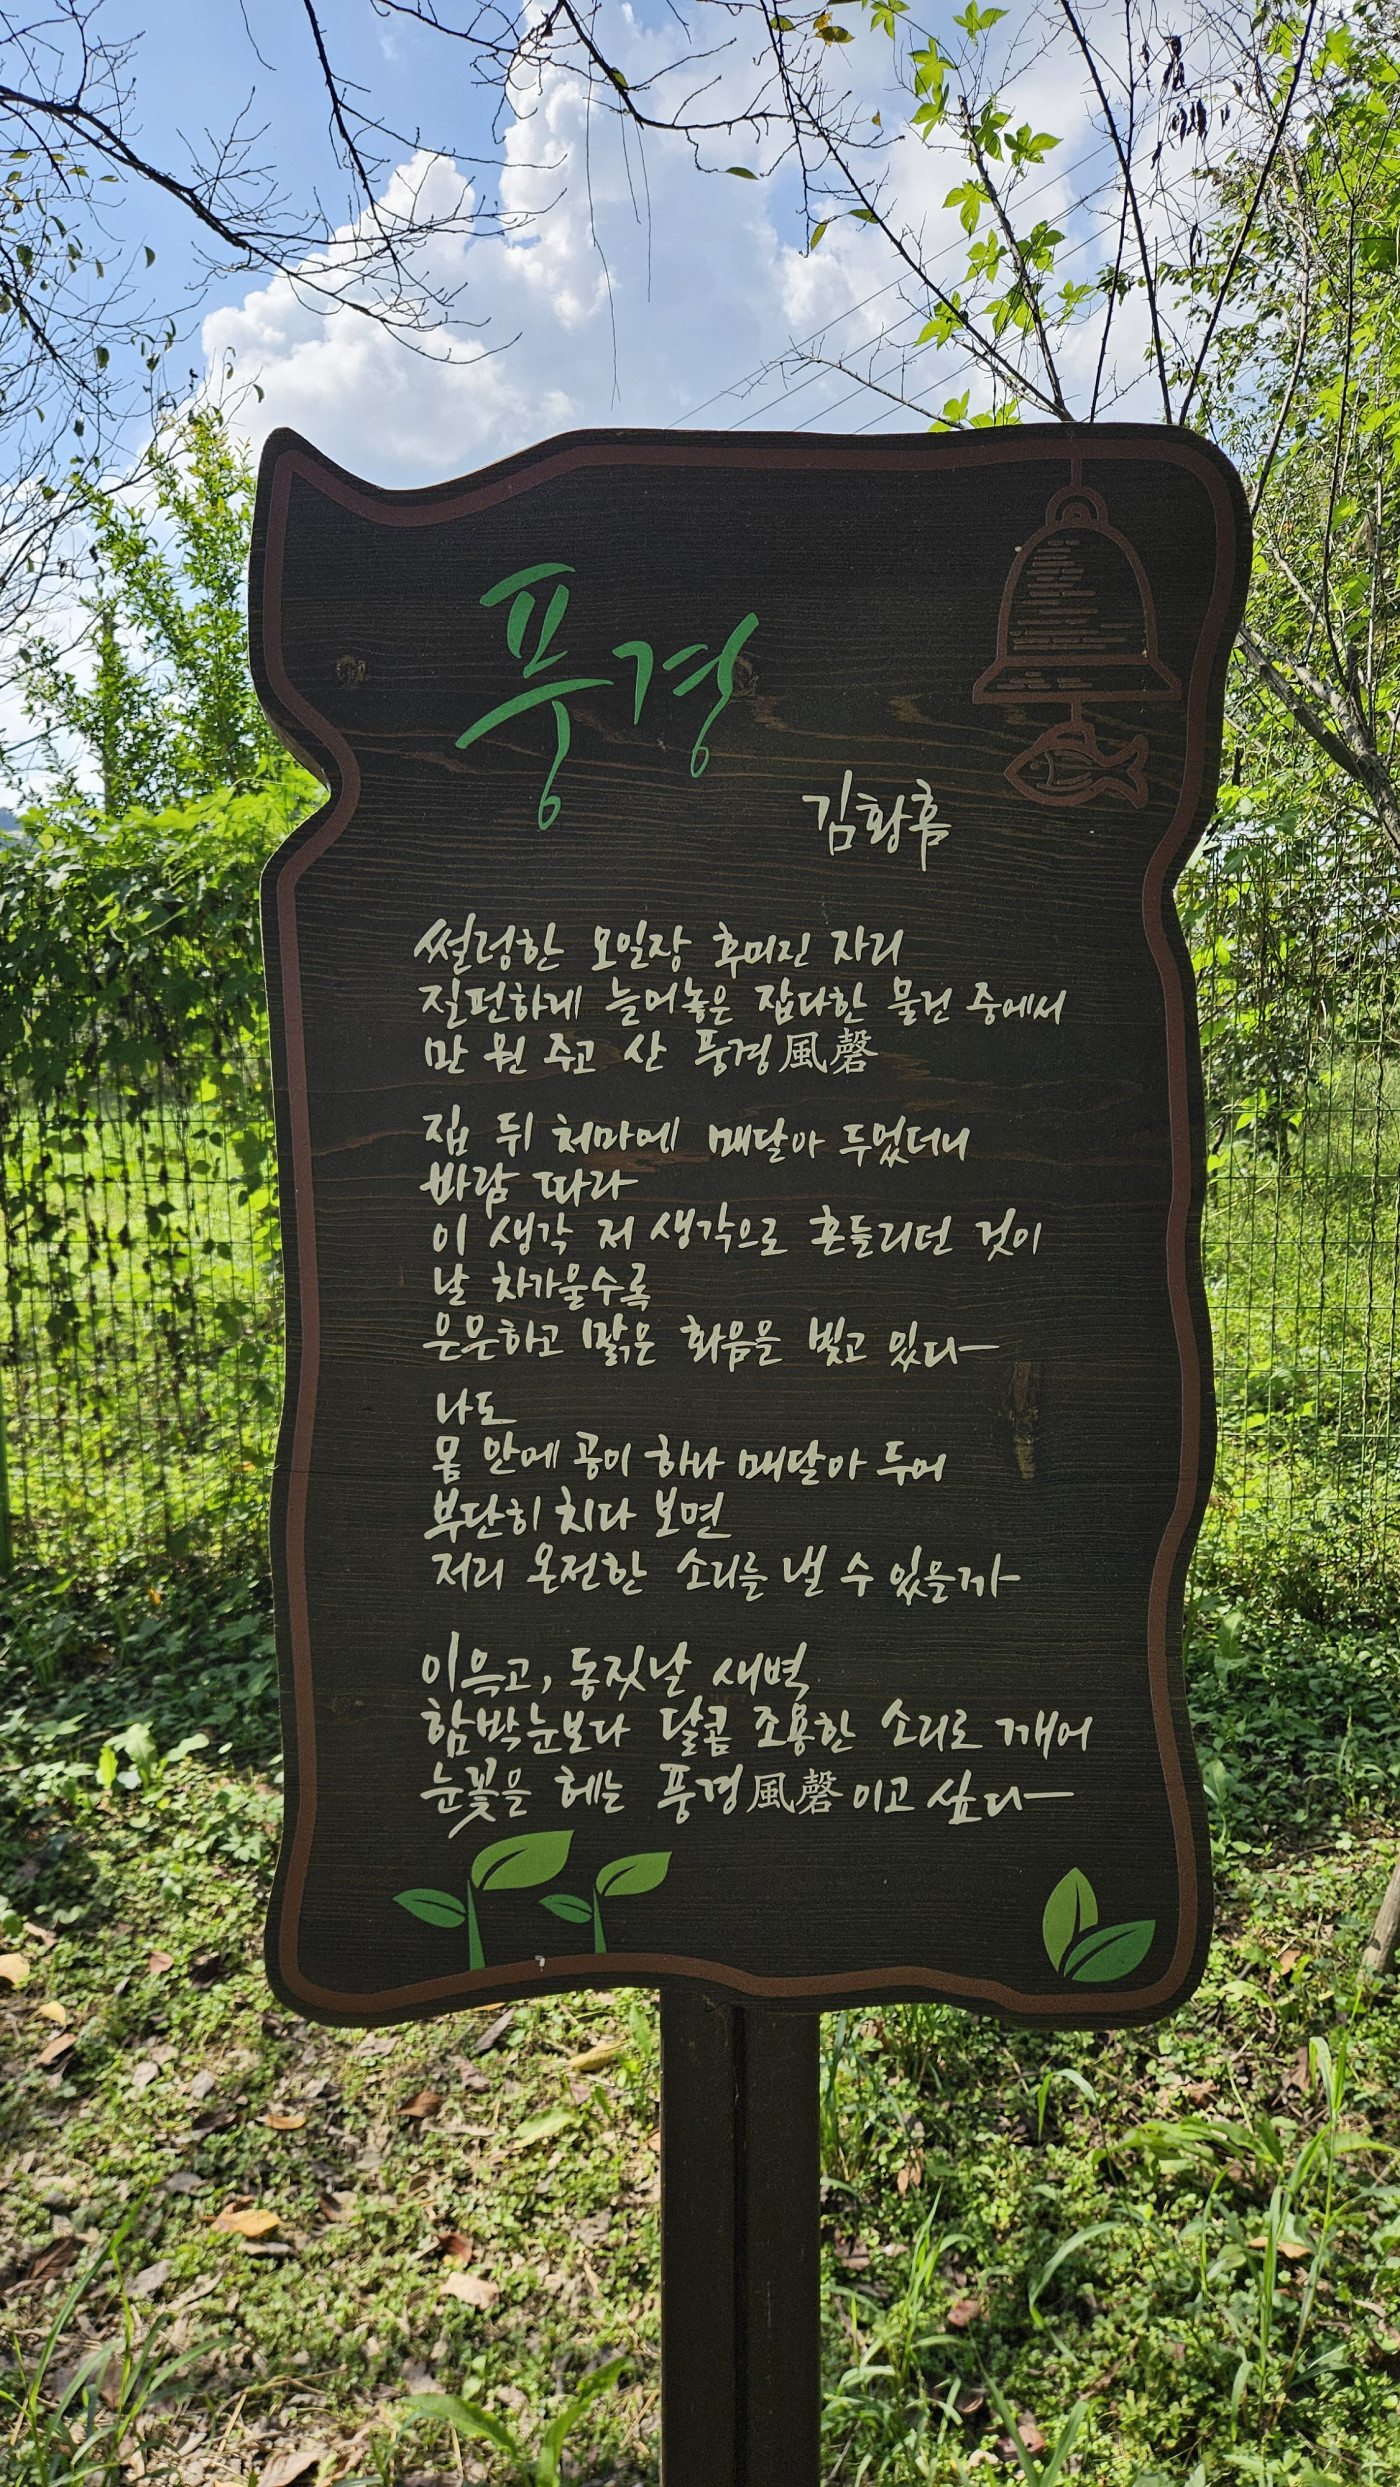 풍경
김황흠
썰렁한 오일장 후미진 자리
질펀하게 늘어놓은 잡다한 물건 중에서
만 원 주고 산 풍경風磬
집 뒤 처마에 매달아 두었더니
바람 따라
이 생각 저 생각으로 흔들리던 것이
날 차가울수록
은은하고 맑은 화음을 빚고 있다
나도
몸 안에 공이 하나 매달아 두어
부단히 치다 보면
저리 온전한 소리를 낼 수 있을까
이윽고, 동짓날 새벽
함박눈보다 달콤 조용한 소리로 깨어
눈꽃을 헤는 풍경風磬이고 싶다